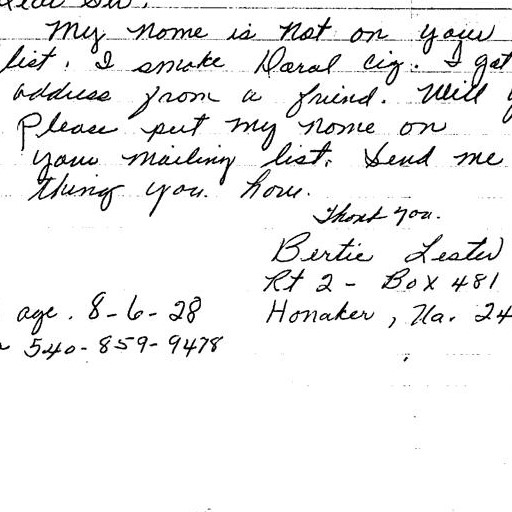 Dear Sir.
My name is not on your
list. I smoke Doral cig. I got
address from a friend. Will y
Please put my name on
your mailing list. Send me
thing you have.
Thank you.
Bertie Lester
Rt 2 - Box 481
Honaker, Va. 24
age. 8-6-28
540-859-9478